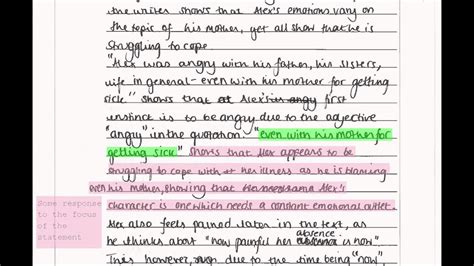 the writer shows that Alex's emotions vary on
the topic of his mother, yet all show that he is
struggling to cope.
"Alex was angry with his father, his sisters,
life in general - even with his mother for getting
sick" shows that Alex's first
instinct is to be angry due to the adjective
"angry" in the quotation. "even with his mother for
getting sick" shows that Alex appears to be
struggling to cope with her illness as he is blaming
even his mother, showing that Alex's
character is one which needs a constant emotional outlet.
Some response
to the focus
of the
statement
Alex also feels pained later in the text, as
absence
he thinks about "how painful her absence is now".
This however, is due to the time being "now",